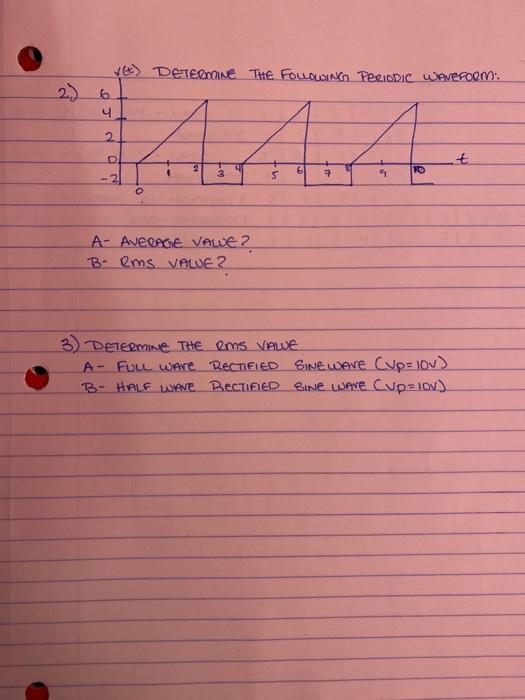 v(t) DETERMINE THE FOLLOWING PERIODIC WAVEFORM:
2.)
6
4
2
0
-2
0 1 2 3 4 5 6 7 8 9 10 t
A- AVERAGE VALUE?
B- RMS VALUE?
3) DETERMINE THE RMS VALUE
A- FULL WAVE RECTIFIED SINE WAVE (Vp=10V)
B- HALF WAVE RECTIFIED SINE WAVE (Vp=10V)